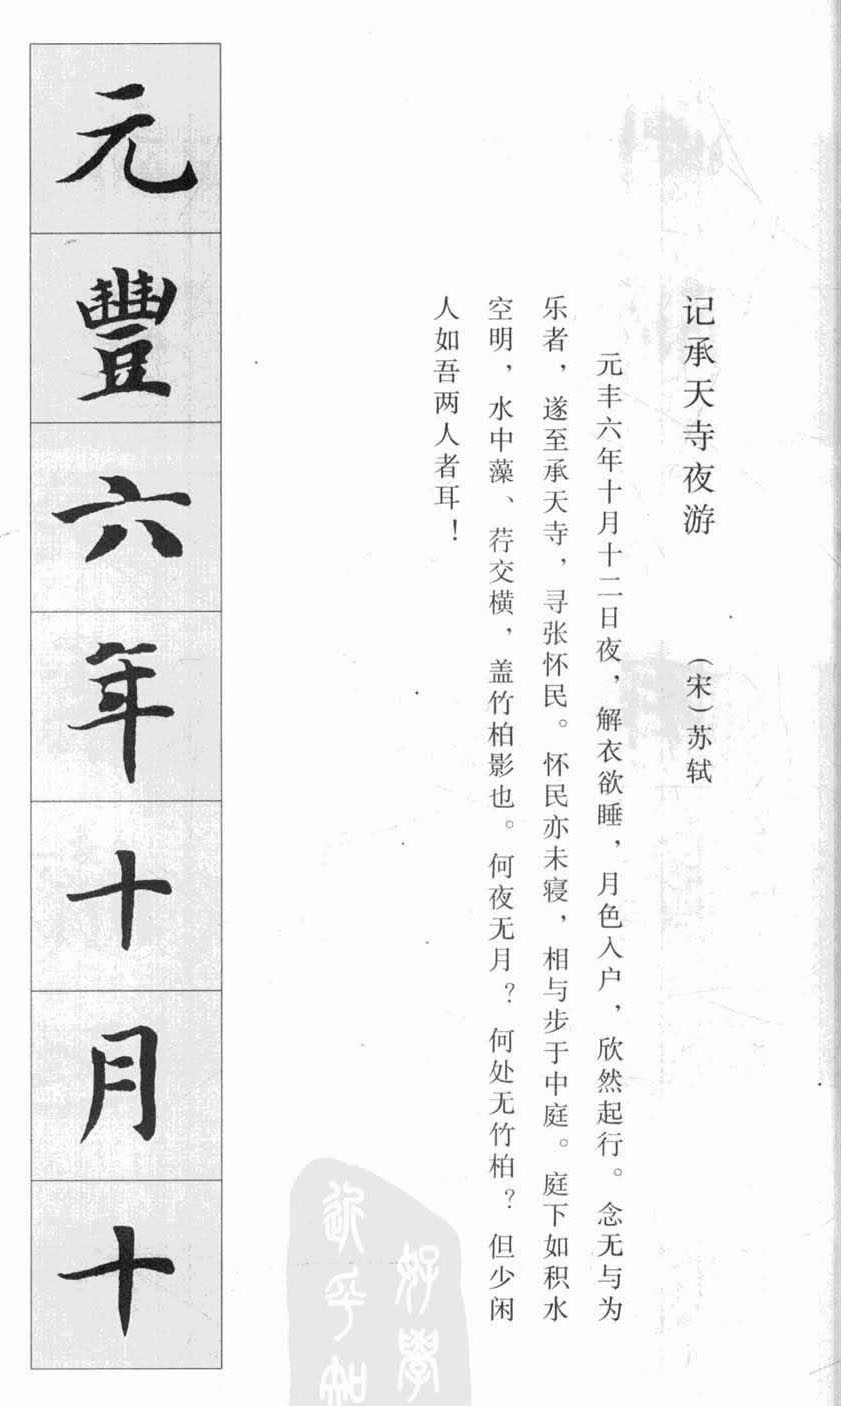 记承天寺夜游 （宋）苏轼
元丰六年十月十二日夜，解衣欲睡，月色入户，欣然起行。念无与为
乐者，遂至承天寺，寻张怀民。怀民亦未寝，相与步于中庭。庭下如积水
空明，水中藻、荇交横，盖竹柏影也。何夜无月？何处无竹柏？但少闲
人如吾两人者耳！
元豐六年十月十
好學
近乎知